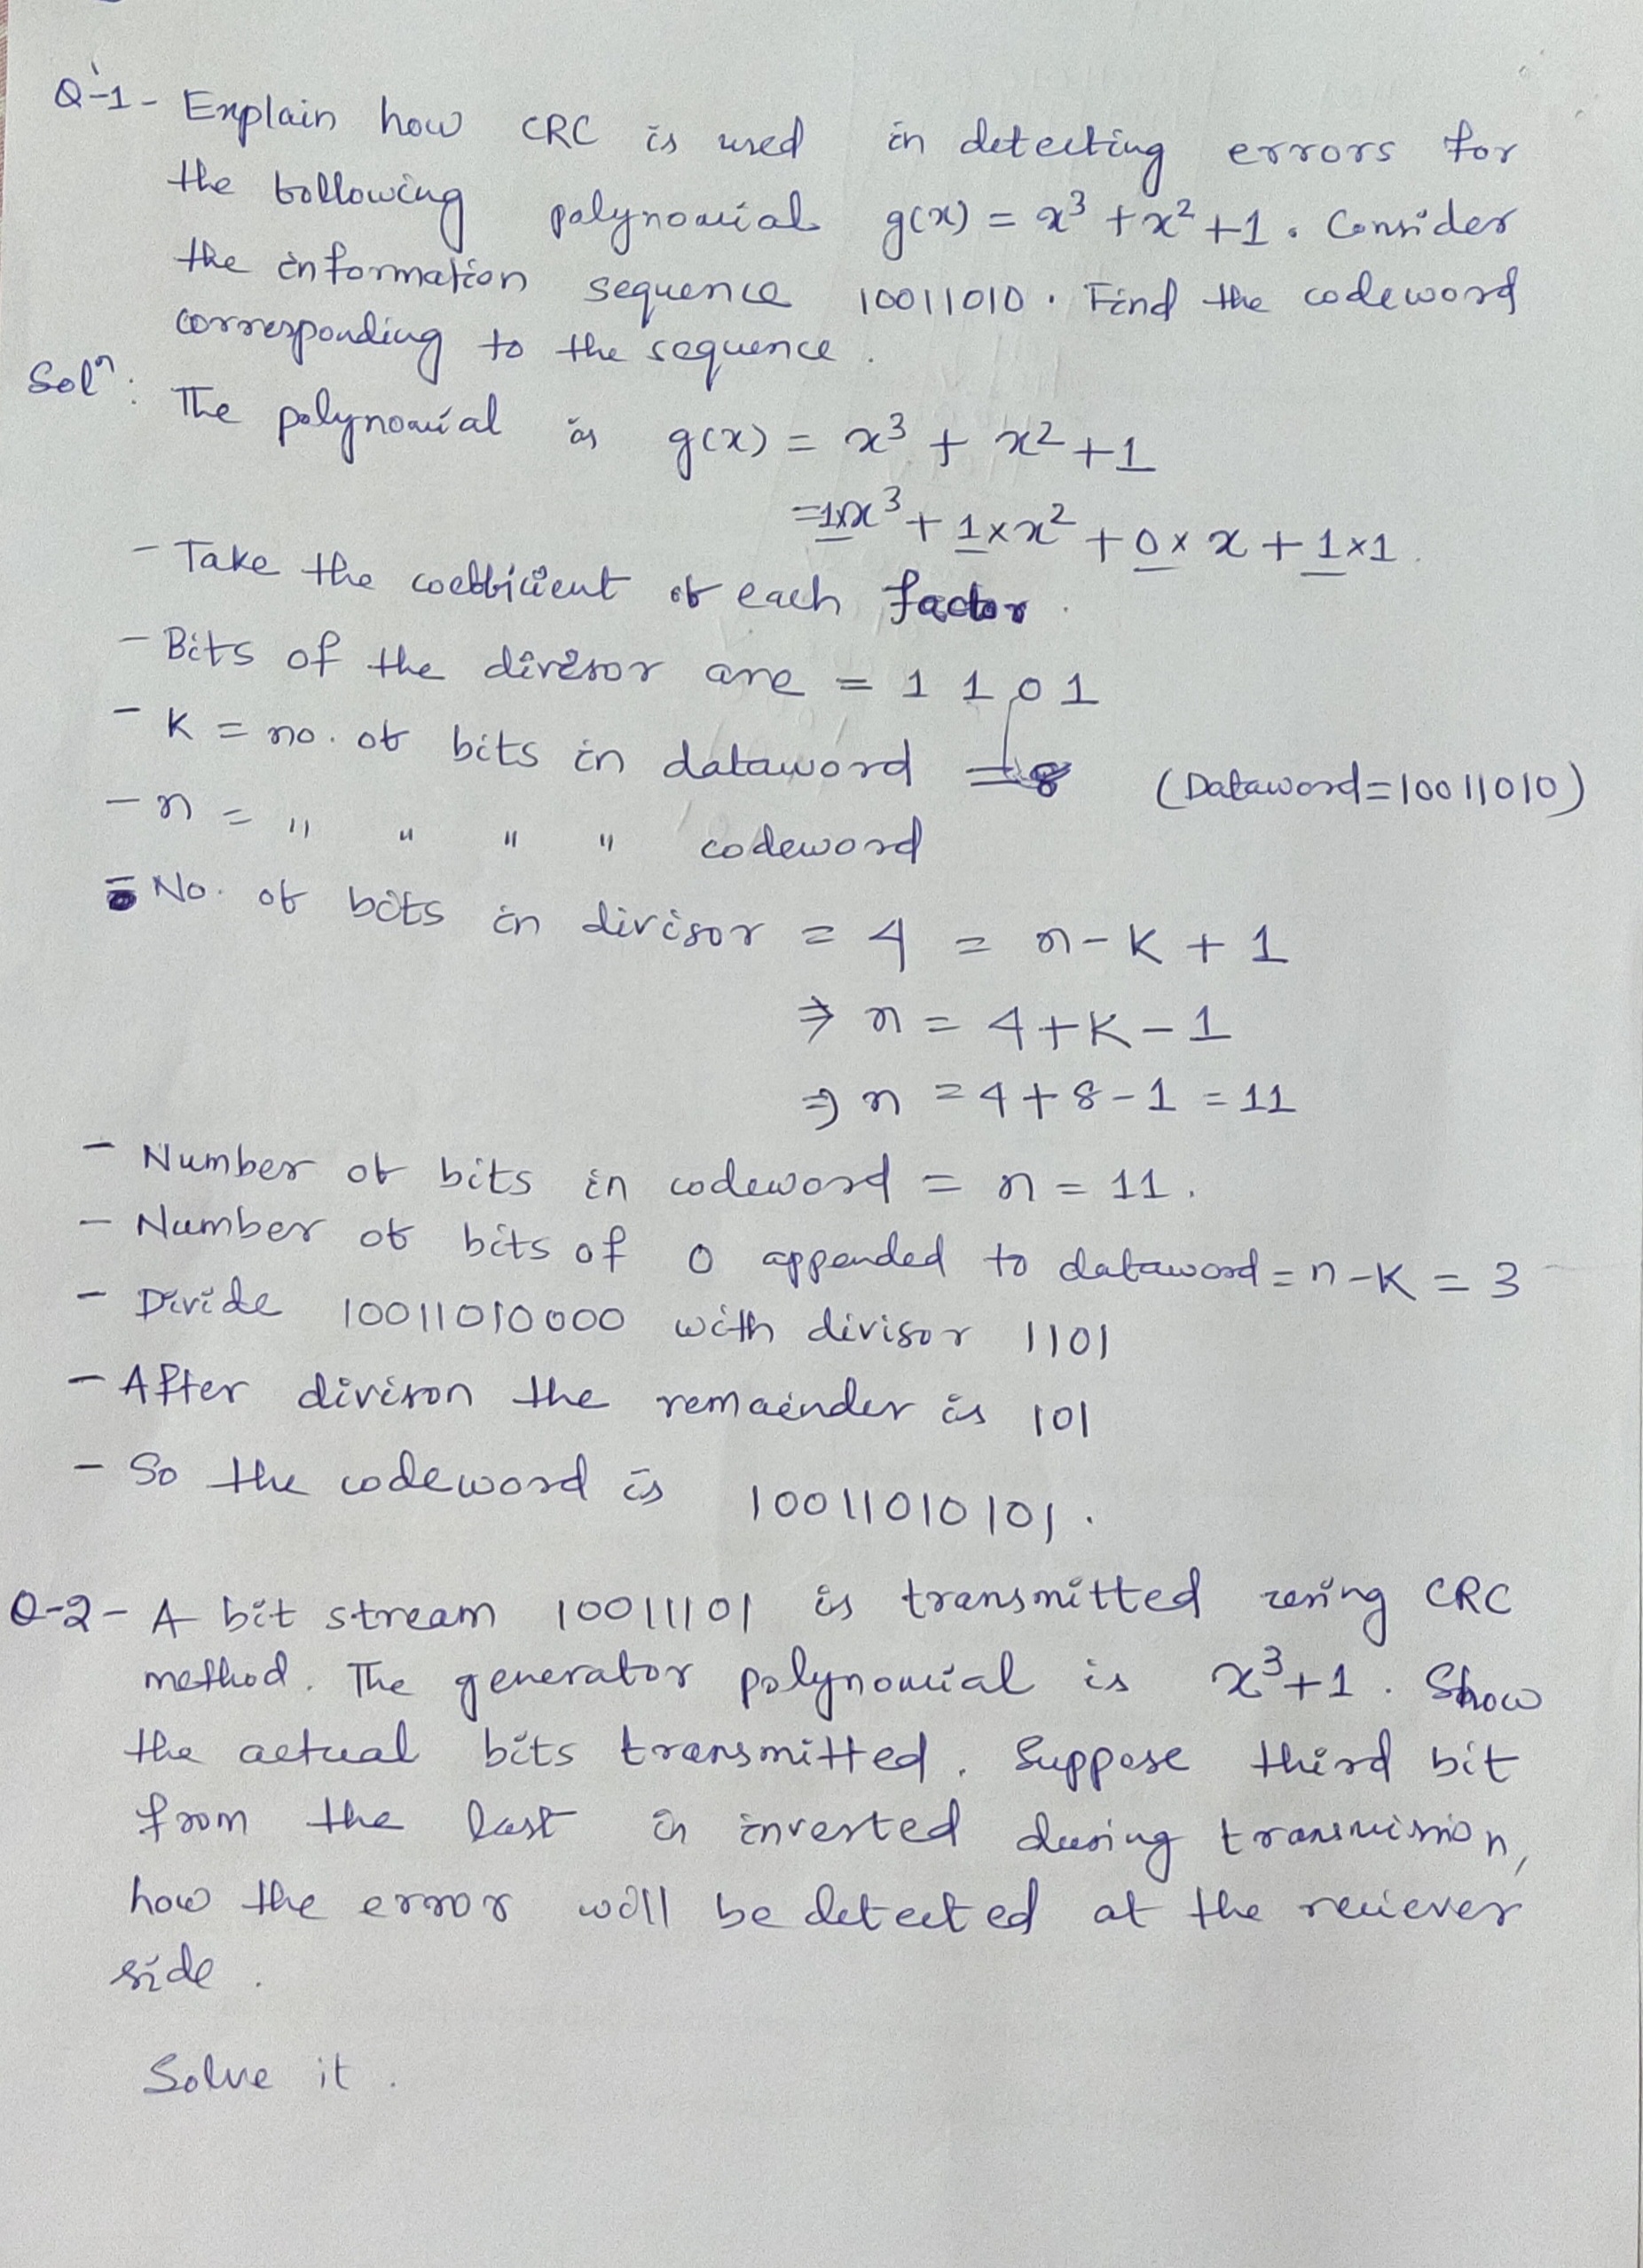 Q-1- Explain how CRC is used in detecting errors for
the following polynomial g(x) = x³ + x² + 1. Consider
the information sequence 10011010. Find the codeword
corresponding to the sequence.
Solⁿ: The polynomial is g(x) = x³ + x² + 1
= 1×x³ + 1×x² + 0×x + 1×1.
- Take the coefficient of each factor.
- Bits of the divisor are = 1 1 0 1
- K = no. of bits in dataword = 8 (Dataword=10011010)
- n = " " " " codeword
- No. of bits in divisor = 4 = n-K+1
⇒ n = 4+K-1
⇒ n = 4+8-1 = 11
- Number of bits in codeword = n = 11.
- Number of bits of 0 appended to dataword = n-K = 3
- Divide 10011010000 with divisor 1101
- After divison the remainder is 101
- So the codeword is 10011010101.
Q-2- A bit stream 10011101 is transmitted using CRC
method. The generator polynomial is x³+1. Show
the actual bits transmitted. Suppose third bit
from the last is inverted during transmission,
how the error will be detected at the reciever
side.
Solve it.